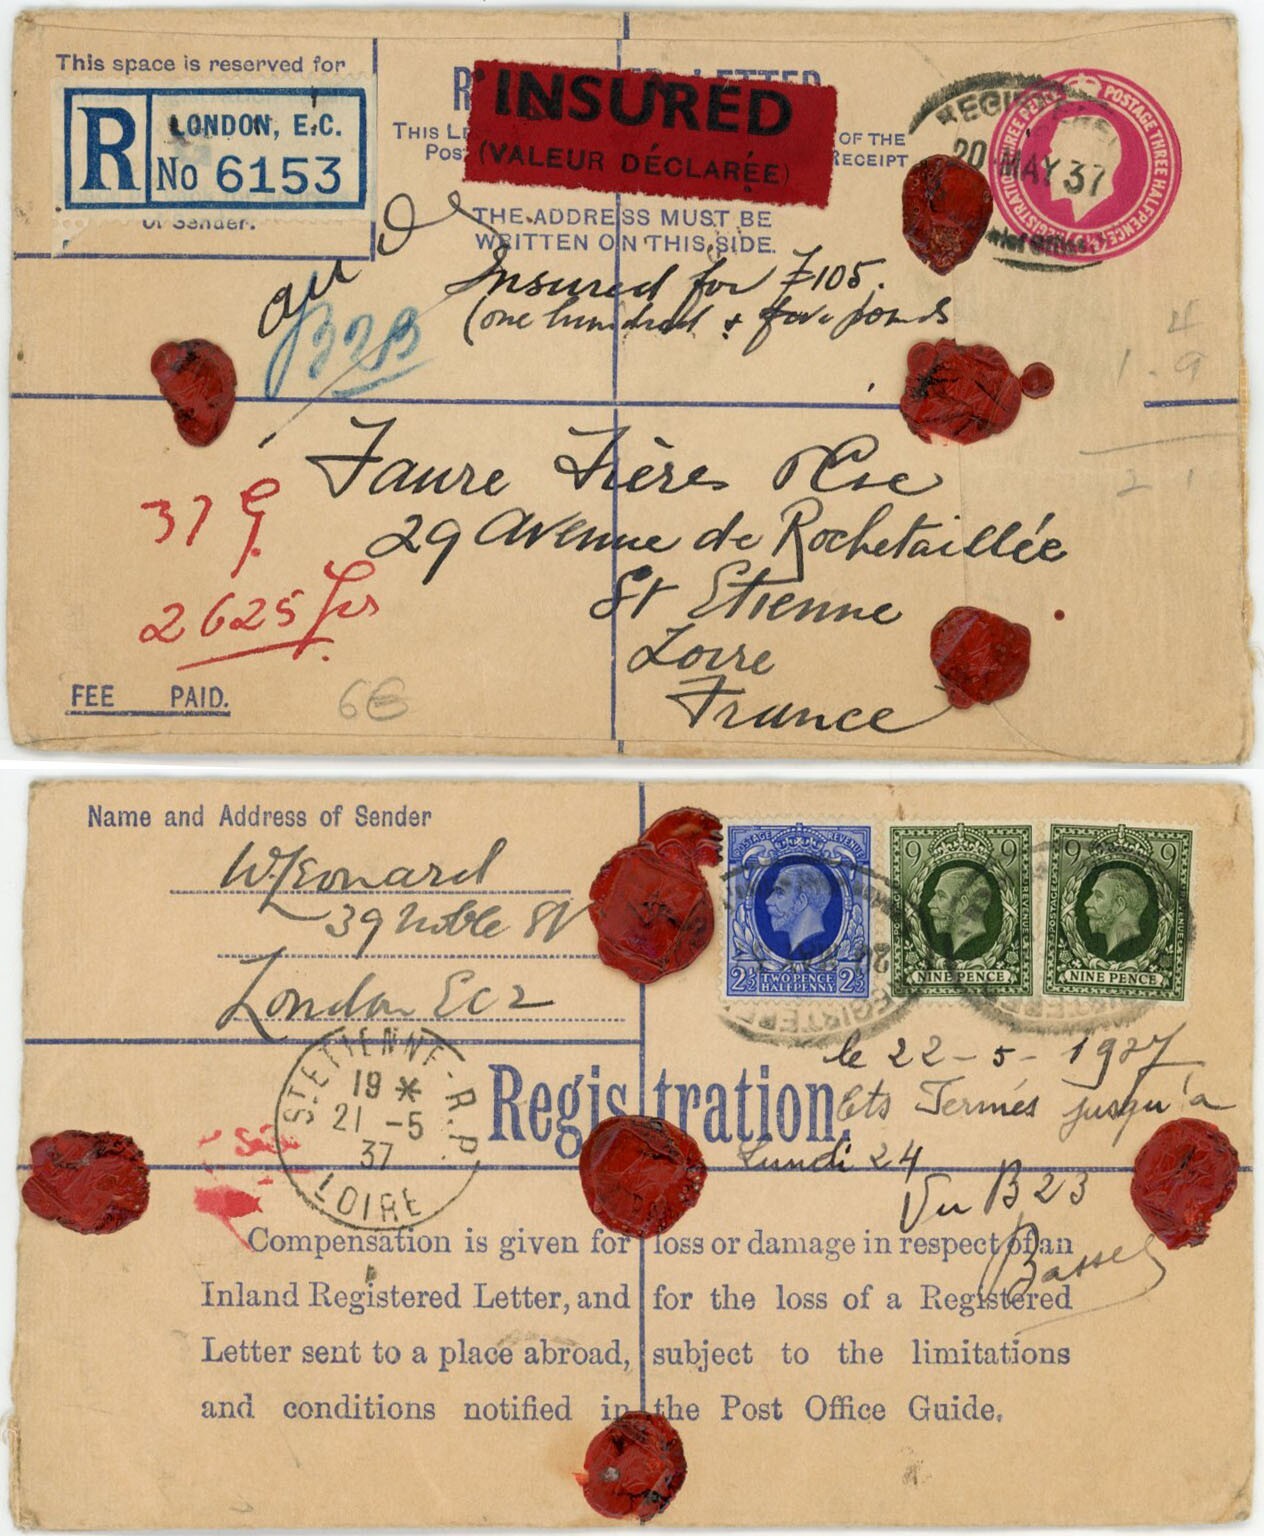 This space is reserved for
R
LONDON, E.C.
No 6153
of Sender.
INSURED
(VALEUR DÉCLARÉE)
OF THE
RECEIPT
THE ADDRESS MUST BE
WRITTEN ON THIS SIDE.
REGISTRATION THREE PENCE
POSTAGE THREE HALFPENCE
20 MAY 37
Insured for £105.
(one hundred & five pounds
4
1 . 9
2 1
Faure Frères & Cie
29 Avenue de Rochetaillée
St Etienne
Loire
France
37 g.
2625 frs
FEE PAID.
Name and Address of Sender
W. Leonard
39 Noble St
London EC2
POSTAGE REVENUE
2½ TWO PENCE HALFPENNY 2½
9 9
POSTAGE REVENUE
NINE PENCE
9 9
POSTAGE REVENUE
NINE PENCE
REGISTERED
ST ETIENNE - R.P.
19 *
21 -5
37
LOIRE
Registration.
le 22-5-1937
Ets Fermés jusqu'à
Lundi 24
Vu B23
Compensation is given for loss or damage in respect of an
Inland Registered Letter, and for the loss of a Registered
Letter sent to a place abroad, subject to the limitations
and conditions notified in the Post Office Guide.